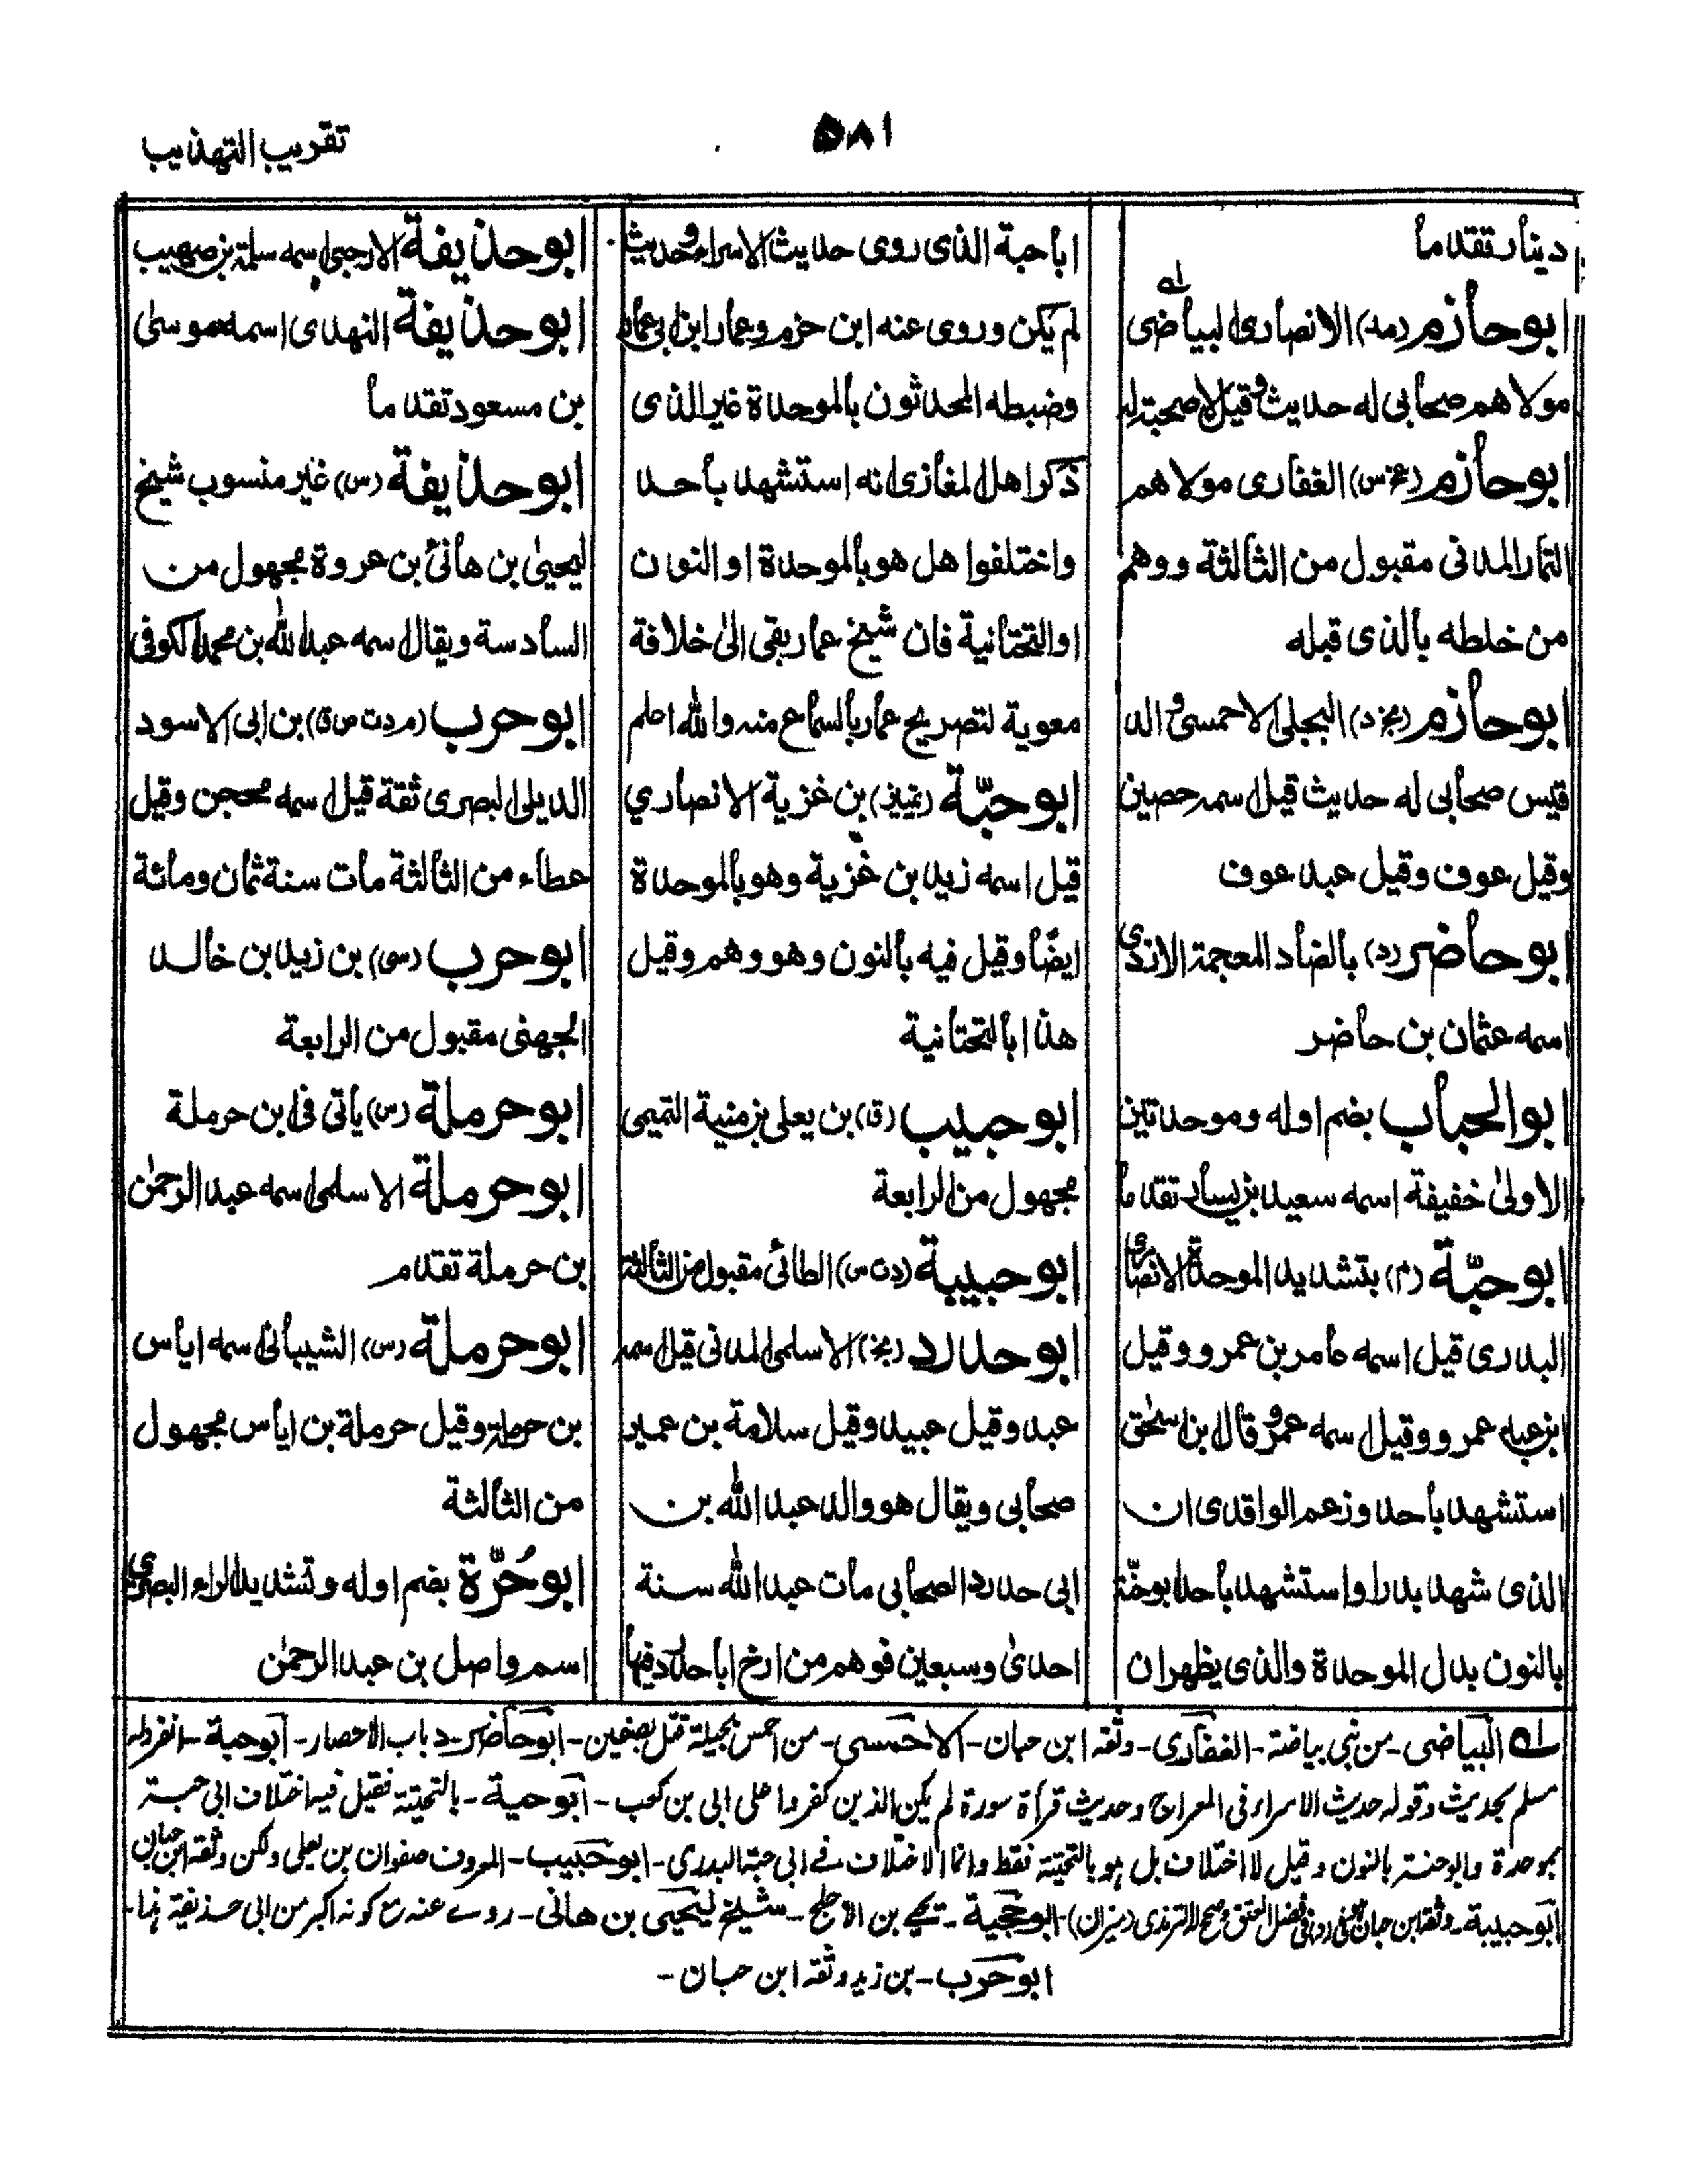 تقريب التهذيب
٥٨١
دينار تقدما
ابوحازم (مد) الانصارى البياضى
مولاهم صحابى له حديث وقيل لا صحبة له
ابوحازم (عخ س) الغفارى مولاهم
التمار المدنى مقبول من الثالثة ووهم
من خلطه بالذى قبله
ابوحازم (بخ د) البجلى الاحمسى والد
قيس صحابى له حديث قيل اسمه حصين
وقيل عوف وقيل عبد عوف
ابوحاضر (د) بالضاد المعجمة الازدى
اسمه عثمان بن حاضر
ابوالحباب بضم اوله وموحدتين
الاولىٰ خفيفة اسمه سعيد بن يسار تقدما
ابوحبّة (م) بتشديد الموحدة الانصارى
البدرى قيل اسمه عامر بن عمرو وقيل
ابن عبد عمرو وقيل اسمه عمرو وقال ابن اسحٰق
استشهد باحد وزعم الواقدى ان
الذى شهد بدرا واستشهد باحد ابوحنّة
بالنون بدل الموحدة والذى يظهر ان
اباحبة الذى روى حديث الاسراء وحديث
لم يكن وروى عنه ابن حزم وعمار ابن ابى عمار
وضبطه المحدثون بالموحدة غير الذى
ذكر اهل المغازى انه استشهد باحد
واختلفوا هل هو بالموحدة او النون
او التحتانية فان شيخ عمار بقى الىٰ خلافة
معوية لتصريح عمار بالسماع منه والله اعلم
ابوحبّة (تمييز) بن غزية الانصاري
قيل اسمه زيد بن غزية وهو بالموحدة
ايضًا وقيل فيه بالنون وهو وهم وقيل
هذا بالتحتانية
ابوحبيب (ق) بن يعلى بن منية التميمى
مجهول من الرابعة
ابوحبيبة (دت س) الطائى مقبول من الثالثة
ابوحدرد (بخ) الاسلمى المدنى قيل اسمه
عبد وقيل عبيد وقيل سلامة بن عمير
صحابى ويقال هو والد عبد الله بن
ابى حدرد الصحابى مات عبد الله سنة
احدىٰ وسبعين فوهم من ارخ اباحدرد فيها
ابوحذيفة الارحبى اسمه سلمة بن صهيب
ابوحذيفة النهدى اسمه موسىٰ
بن مسعود تقدما
ابوحذيفة (س) غير منسوب شيخ
ليحيىٰ بن هانئ بن عروة مجهول من
السادسة ويقال اسمه عبد الله بن محمد الكوفى
ابوحرب (م د ت ص ق) بن ابى الاسود
الديلى البصرى ثقة قيل اسمه محجن وقيل
عطاء من الثالثة مات سنة ثمان ومائة
ابوحرب (سى) بن زيد بن خالد
الجهنى مقبول من الرابعة
ابوحرملة (س) ياتى فى ابن حرملة
ابوحرملة الاسلمى اسمه عبد الرحمٰن
بن حرملة تقدم
ابوحرملة (س) الشيبانى اسمه اياس
بن حرملة وقيل حرملة بن اياس مجهول
من الثالثة
ابوحُرّة بضم اوله وتشديد الراء البصرى
اسمه واصل بن عبد الرحمٰن
له البياضى - من بنى بياضة - الغفارى - وثقه ابن حبان - الاحمسى - من احمس بجيلة قتل بصفين - ابوحاضر - د باب الاحصار - ابوحبة - انفرد له
مسلم بحديث وقوله حديث الاسراء فى المعراج وحديث قرأة سورة لم يكن الذين كفروا على ابى بن كعب - ابوحية - بالتحتية فقيل فيه اختلاف ابى حبة
بموحدة وابوحنة بالنون وقيل لا اختلاف بل هو بالتحتية فقط وانما الاختلاف فے ابى حبة البدرى - ابوحبيب - المعروف صفوان بن يعلى ولكن وثقه ابن حبان
ابوحبيبة - وثقه ابن حبان فى فضل العتق وصحح له الترمذى (ميزان) - ابوحجية - يحيے بن الاجلح - شيخ ليحيى بن هانى - روے عنه مع كونه اكبر من ابى حذيفة هذا -
ابوحرب - بن زيد وثقه ابن حبان -